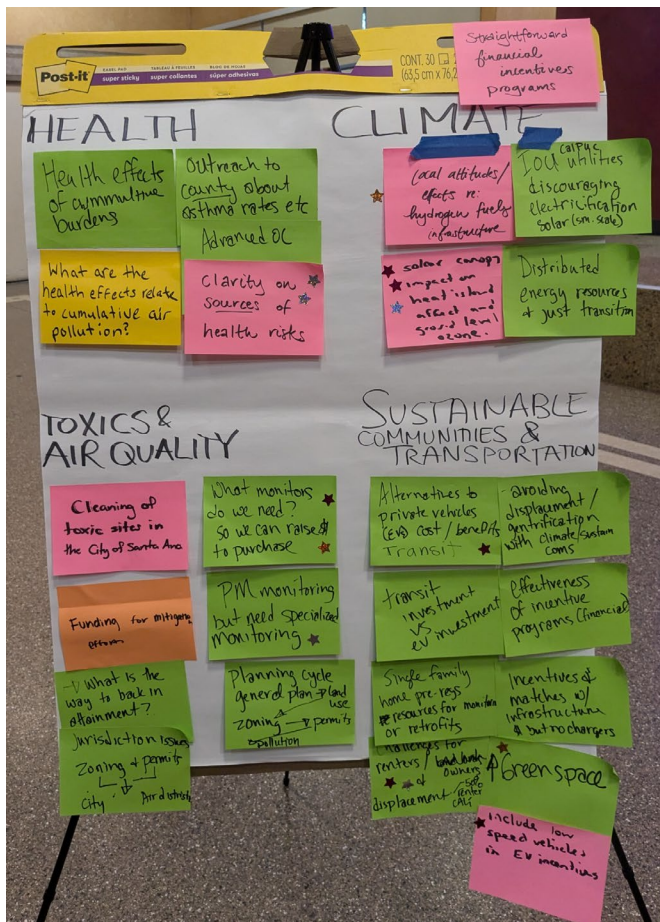 Post-it
EASEL PAD
super sticky
TABLEAU À FEUILLES
super collantes
BLOC DE HOJAS
súper adhesivas
CONT. 30
(63,5 cm x 76,2
Straightforward
financial
incentives
programs
HEALTH
Health effects
of cymmultive
burdens
Outreach to
county about
asthma rates etc
Advanced OC
What are the
health effects relate
to cumulative air
pollution?
Clarity on
sources of
health risks
CLIMATE
Local attitudes/
efects re:
hydrogen fuels
infrastructure
CalPUC
IOU utilities
discouraging
electrilification
solar (sm. scale)
solar canopy
impact on
heat island
affect and
ground level
ozone.
Distributed
energy resources
& just transition
TOXICS &
AIR QUALITY
Cleaning of
toxic sites in
the City of Santa Ana
What monitors
do we need?
so we can raise $
to purchase
Funding for mitigating
efforts
PM monitoring
but need specialized
monitoring
What is the
way to back in
attainment?
Planning cycle
general plan → land
use
zoning → permits
pollution
Jurisdiction issues
Zoning & permits
City
Air districts
SUSTAINABLE
COMMUNITIES &
TRANSPORTATION
Alternatives to
private vehicles
(EVs) cost/benefits
Transit
avoiding
displacement/
gentrification
with climate/sustain
coms
transit
investment
vs
ev investment
effectiveness
of incentive
programs (financial)
Single family
home pre-regs
resources for monitoring
or retrofits
Incentives &
matches w/
infrastructure
but no chargers
Challenges for
renters/
owners
& displacement
renter
CALi
↑ Greenspace
include low
speed vehicles
in EV incentives